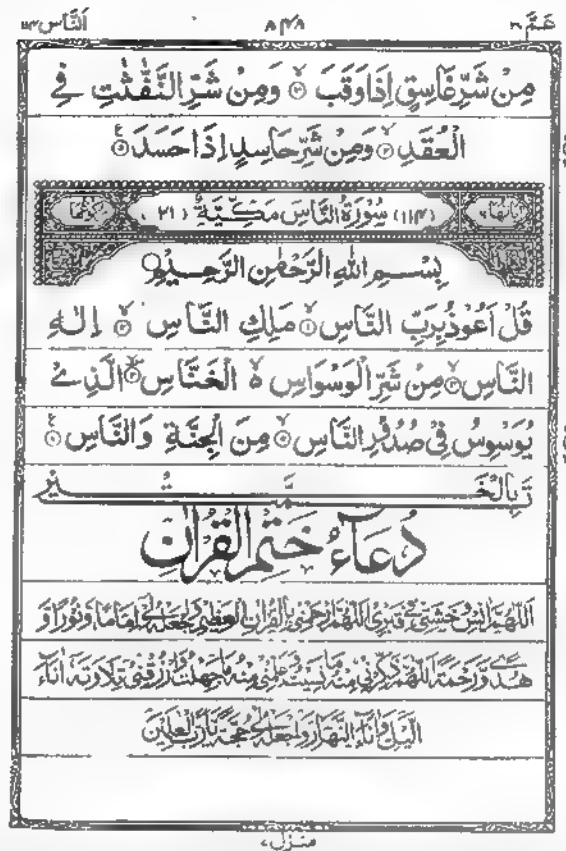 عَمَّ ۳۰ ۸۴۸ اَلنَّاس ۱۱۴
مِنْ شَرِّ غَاسِقٍ اِذَا وَقَبَ ۙ﴿۳﴾ وَمِنْ شَرِّ النَّفّٰثٰتِ فِي
الْعُقَدِ ۙ﴿۴﴾ وَمِنْ شَرِّ حَاسِدٍ اِذَا حَسَدَ ﴿۵﴾
(۱۱۴) سُوْرَةُ النَّاسِ مَكِّيَّةٌ (۲۱)
بِسْمِ اللهِ الرَّحْمٰنِ الرَّحِيْمِ
قُلْ اَعُوْذُ بِرَبِّ النَّاسِ ۙ﴿۱﴾ مَلِكِ النَّاسِ ۙ﴿۲﴾ اِلٰهِ
النَّاسِ ۙ﴿۳﴾ مِنْ شَرِّ الْوَسْوَاسِ ۙ الْخَنَّاسِ ﴿۴﴾ الَّذِيْ
يُوَسْوِسُ فِيْ صُدُوْرِ النَّاسِ ۙ﴿۵﴾ مِنَ الْجِنَّةِ وَالنَّاسِ ﴿۶﴾
تَمَّتْ بِالْخَيْرِ
دُعَآءُ خَتْمِ الْقُرْاٰنِ
اَللّٰهُمَّ اٰنِسْ وَحْشَتِيْ فِيْ قَبْرِيْ اَللّٰهُمَّ ارْحَمْنِيْ بِالْقُرْاٰنِ الْعَظِيْمِ وَاجْعَلْهُ لِيْ اِمَامًا وَّنُوْرًا وَّ
هُدًى وَّرَحْمَةً اَللّٰهُمَّ ذَكِّرْنِيْ مِنْهُ مَا نَسِيْتُ وَعَلِّمْنِيْ مِنْهُ مَا جَهِلْتُ وَارْزُقْنِيْ تِلَاوَتَهٗ اٰنَآءَ
الَّيْلِ وَاٰنَآءَ النَّهَارِ وَاجْعَلْهُ لِيْ حُجَّةً يَّا رَبَّ الْعٰلَمِيْنَ
منزل ۷